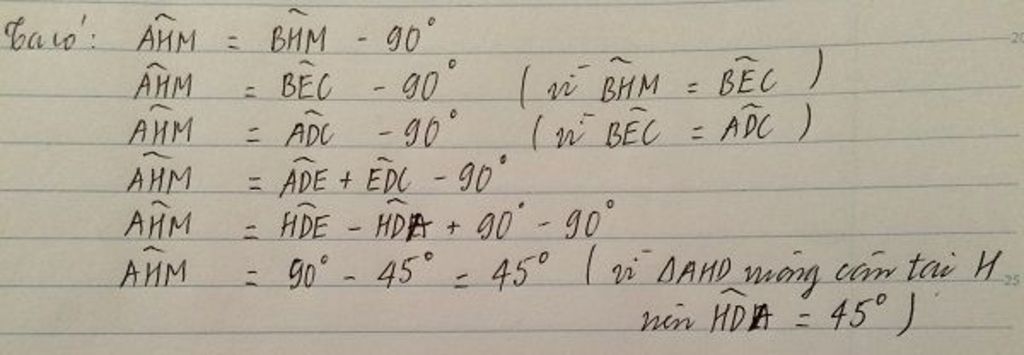 Ta có: \widehat{AHM} = \widehat{BHM} - 90°
\widehat{AHM} = \widehat{BEC} - 90° ( vì \widehat{BHM} = \widehat{BEC} )
\widehat{AHM} = \widehat{ADC} - 90° ( vì \widehat{BEC} = \widehat{ADC} )
\widehat{AHM} = \widehat{ADE} + \widehat{EDC} - 90°
\widehat{AHM} = \widehat{HDE} - \widehat{HDA} + 90° - 90°
\widehat{AHM} = 90° - 45° = 45° ( vì ΔAHD vuông cân tại H
nên \widehat{HDA} = 45° )
20
25